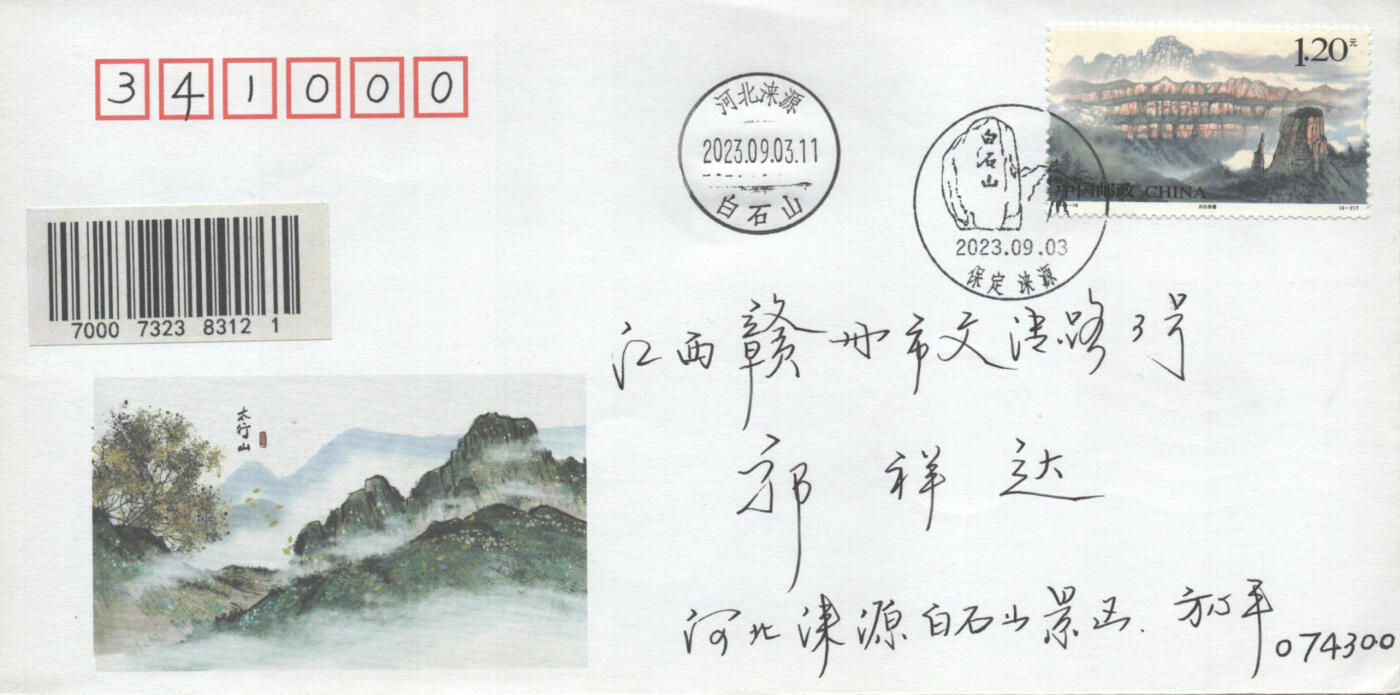 341000
河北涞源
2023.09.03.11
白石山
1.20元
中国邮政 CHINA
白石山
2023.09.03
保定 涞源
7000 7323 8312 1
太行山
江西赣州市文清路3号
郭祥达
河北涞源白石山景区.
074300